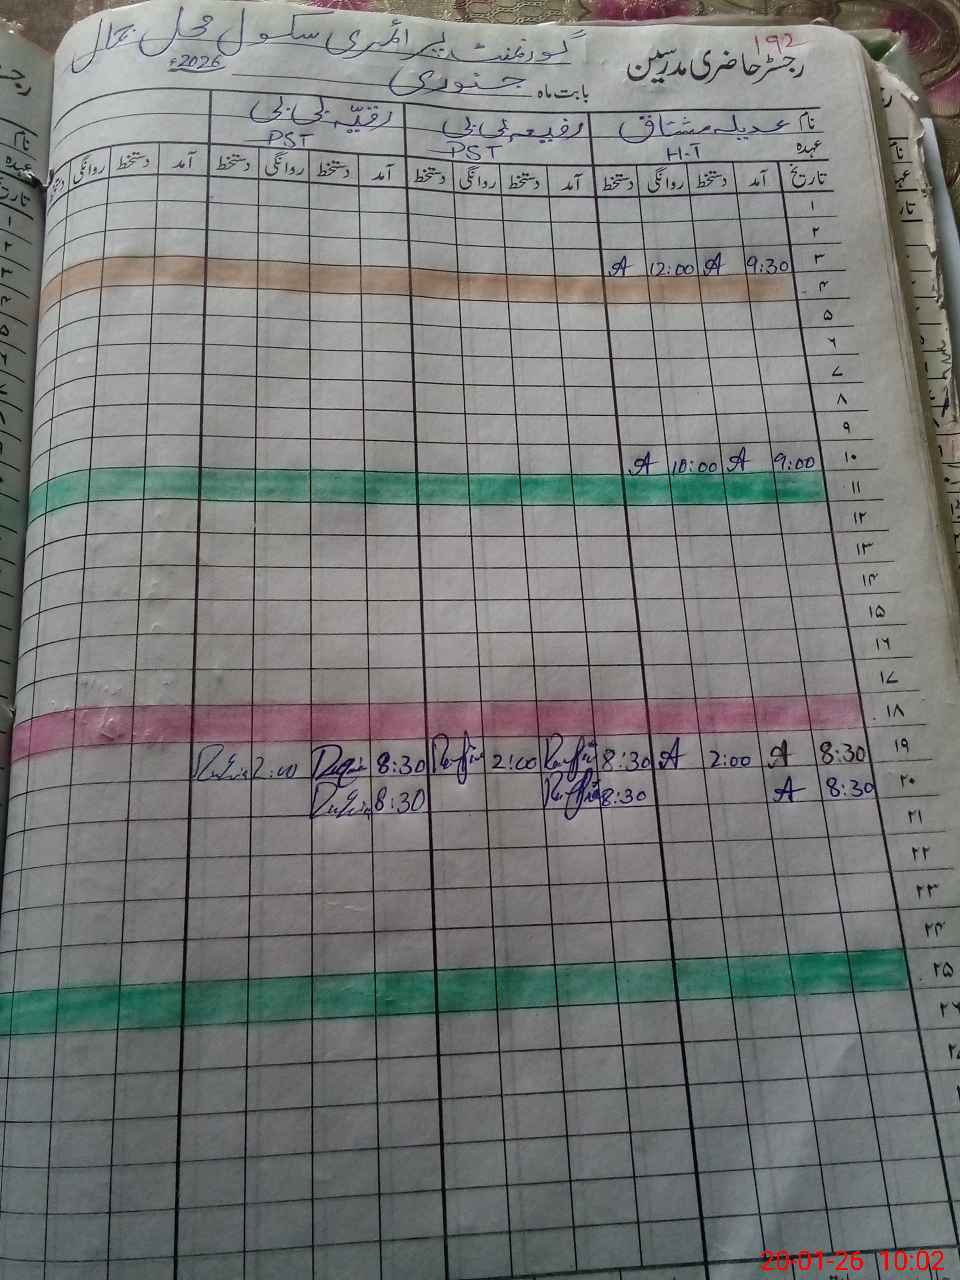 192
گورنمنٹ پرائمری سکول محل جمال
رجسٹر حاضری مدرسین
بابت ماہ جنوری 2026ء
نام عدیلہ مشتاق رفیعہ بی بی رقیہ بی بی
عہدہ H.T PST PST
تاریخ آمد دستخط روانگی دستخط آمد دستخط روانگی دستخط آمد دستخط روانگی دستخط آمد دستخط روانگی
۱
۲
۳ 9:30 A 12:00 A
۴
۵
۶
۷
۸
۹
۱۰ 9:00 A 10:00 A
۱۱
۱۲
۱۳
۱۴
۱۵
۱۶
۱۷
۱۸
۱۹ 8:30 A 2:00 A 8:30 Raffia 2:00 Raffia 8:30 2:00
۲۰ 8:30 A 8:30 Raffia 8:30
۲۱
۲۲
۲۳
۲۴
۲۵
۲۶
20-01-26 10:02